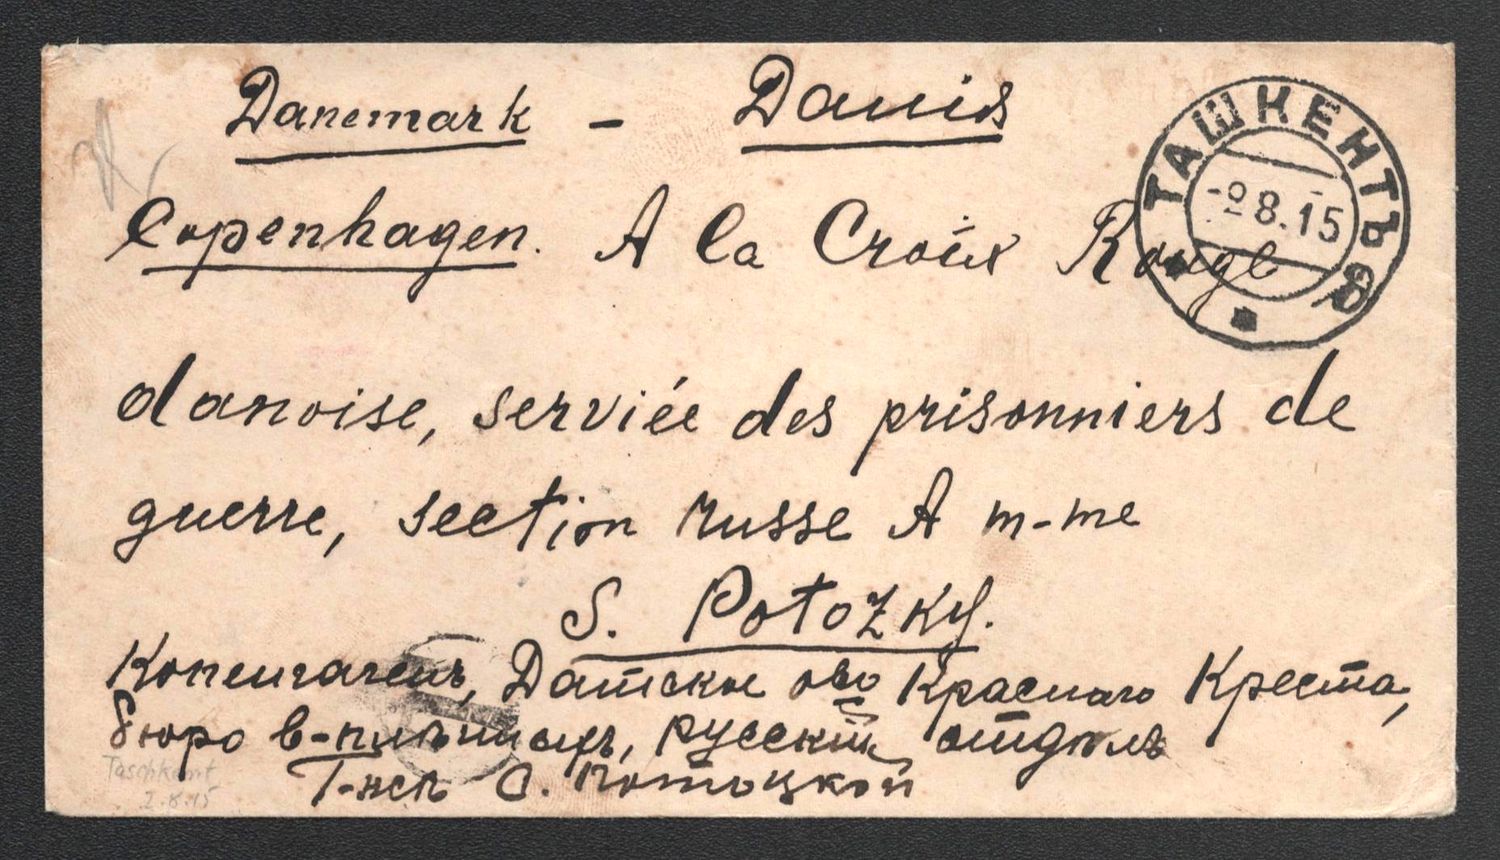 Danemark - Danis
ТАШКЕНТЪ
-2 8.15
Copenhagen. A la Croix Rouge
danoise, serviée des prisonniers de
guerre, section russe A m-me
S. Potozky.
Копенгагенъ, Датское о-во Краснаго Креста,
бюро в-плѣнныхъ, русскій отдѣлъ
Г-жѣ С. Потоцкой
Taschkent
2.8.15